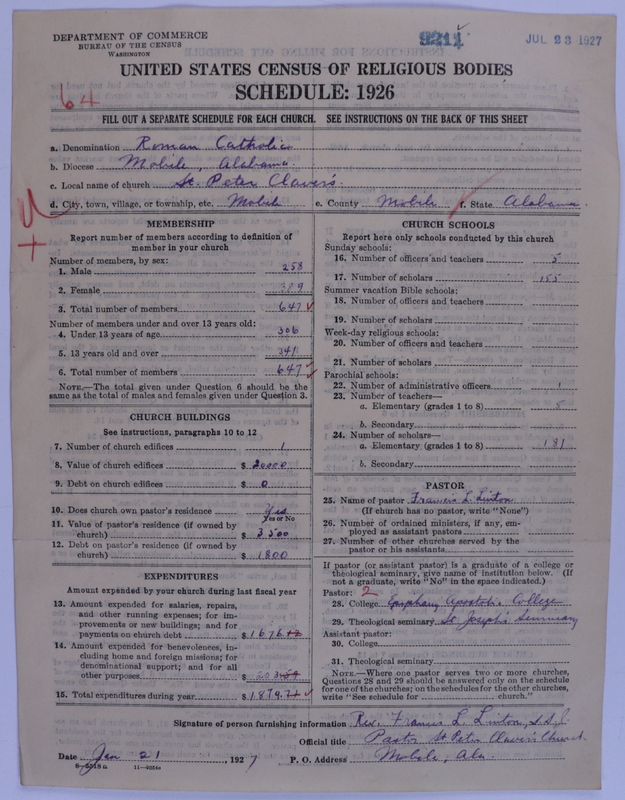 DEPARTMENT OF COMMERCE
BUREAU OF THE CENSUS
WASHINGTON
9211
JUL 23 1927
UNITED STATES CENSUS OF RELIGIOUS BODIES
SCHEDULE: 1926
64
FILL OUT A SEPARATE SCHEDULE FOR EACH CHURCH. SEE INSTRUCTIONS ON THE BACK OF THIS SHEET
a. Denomination Roman Catholic
b. Diocese Mobile, Alabama.
c. Local name of church St. Peter Claver's.
d. City, town, village, or township, etc. Mobile e. County Mobile f. State Alabama.
MEMBERSHIP
Report number of members according to definition of
member in your church
Number of members, by sex:
1. Male 258
2. Female 389
3. Total number of members 647
Number of members under and over 13 years old:
4. Under 13 years of age 306
5. 13 years old and over 341
6. Total number of members 647
NOTE.—The total given under Question 6 should be the
same as the total of males and females given under Question 3.
CHURCH BUILDINGS
See instructions, paragraphs 10 to 12
7. Number of church edifices 1
8. Value of church edifices $ 20000
9. Debt on church edifices $ 0
10. Does church own pastor's residence Yes
Yes or No
11. Value of pastor's residence (if owned by
church) $ 3500
12. Debt on pastor's residence (if owned by
church) $ 1800
EXPENDITURES
Amount expended by your church during last fiscal year
13. Amount expended for salaries, repairs,
and other running expenses; for im-
provements or new buildings; and for
payments on church debt $ 1676
14. Amount expended for benevolences, in-
cluding home and foreign missions; for
denominational support; and for all
other purposes $ 203
15. Total expenditures during year $ 1879.71
CHURCH SCHOOLS
Report here only schools conducted by this church
Sunday schools:
16. Number of officers and teachers 5
17. Number of scholars 155
Summer vacation Bible schools:
18. Number of officers and teachers
19. Number of scholars
Week-day religious schools:
20. Number of officers and teachers
21. Number of scholars
Parochial schools:
22. Number of administrative officers 1
23. Number of teachers—
a. Elementary (grades 1 to 8) 5
b. Secondary
24. Number of scholars—
a. Elementary (grades 1 to 8) 181
b. Secondary
PASTOR
25. Name of pastor Francis L. Linton
(If church has no pastor, write "None")
26. Number of ordained ministers, if any, em-
ployed as assistant pastors
27. Number of other churches served by the
pastor or his assistants
If pastor (or assistant pastor) is a graduate of a college or
theological seminary, give name of institution below. (If
not a graduate, write "No" in the space indicated.)
Pastor: 2
28. College Epiphany Apostolic College
29. Theological seminary St Josephs Seminary
Assistant pastor:
30. College
31. Theological seminary
NOTE.—Where one pastor serves two or more churches,
Questions 28 and 29 should be answered only on the schedule
for one of the churches; on the schedules for the other churches,
write "See schedule for church."
Signature of person furnishing information Rev. Francis L. Linton, S.S.J.
Official title Pastor St. Peter Claver's Church
Date Jan 21, 1927 P. O. Address Mobile, Ala.
8—5518a 11—9256a